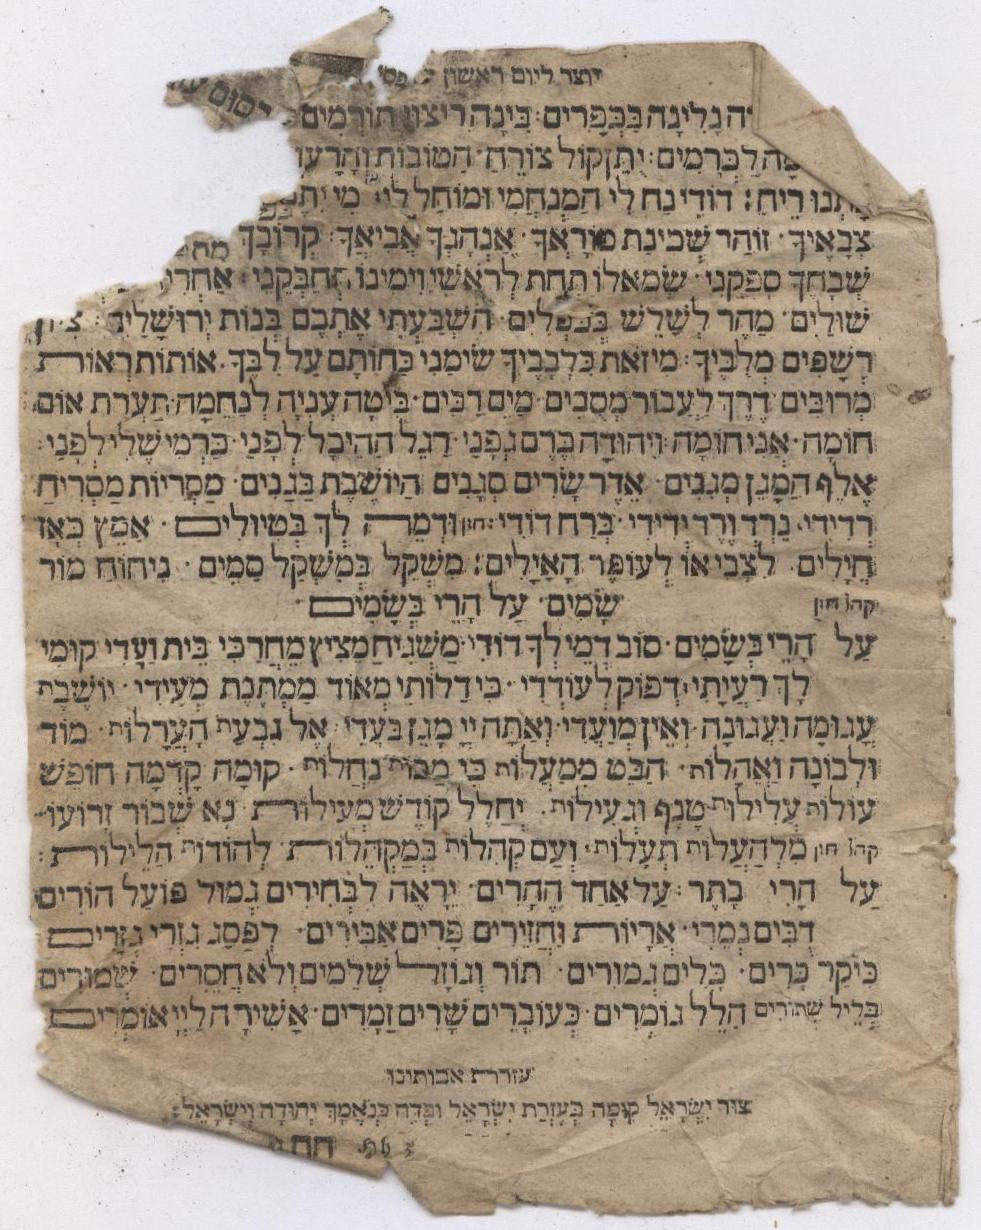 יוצר ליום ראשון
רסום
גלינה בכפרים בינה ריצוי תורמים
לכרמים יתן קול צורח הטובות והרעו
נתנו ריח: דודי נח לי המנחמי ומוחל לי מי
צבאיך זוהר שכינת פוראך אנהגך אביאך קרובך
שבחך ספקני שמאלו תחת לראשי וימינו תחבקני אחרי
שולים מהר לשלש השבעתי אתכם בנות ירושלים
רשפים מלביך מי זאת כלבביך שימני כחותם על לבך אותות ראות
מרובים דרך לעבור מסכים מים רבים ביטה עניה לנחמה תערת אום
חומה אני חומה ויהודה כרם גפני דגל ההיכל לפני כרמי שלי לפני
אלף המגן מגנים אדר שרים סגנים היושבת בגנים מסריות מסריח
רדידי נרד ורד ידידי ברח דודי: חזן ודמה לך בטיולים אמץ כאז
חיילים לצבי או לעופר האילים: משקל במשקל סמים ניחוח מור
קהל חזן שמים על הרי בשמים
על הרי בשמים סוב דמי לך דודי משגיח מציץ מחרכי בית ועדי קומי
לך רעיתי דפוק לעודדי כי דלותי מאוד ממתנת מעידי יושבת
עגומה ועגונה ואין מועדי ואתה יי מגן בעדי אל גבעת הערלות מור
ולבונה ואהלות הבט ממעלות כי מכות נחלות קומה קדמה חופש
עולות עלילות טנף וגעילות יחלל קודש מעילות נא שבור זרועו
קהל חזן מלהעלות תעלות ועם קהלות במקהלות להודות הלילות:
על הרי בתר על אחד ההרים יראה לבחירים גמול פועל הורים
דבים נמרי אריות וחזירים פרים אבירים לפסג גזרי גזרים
כיקר כרים כלים גמורים תור וגוזל שלמים ולא חסרים שמורים
בליל שמורים הלל גומרים כעוברים שרים זמרים אשירה ליי אומרים
עזרת אבותינו
צור ישראל קומה בעזרת ישראל ופדה כנאמך יהודה וישראל: